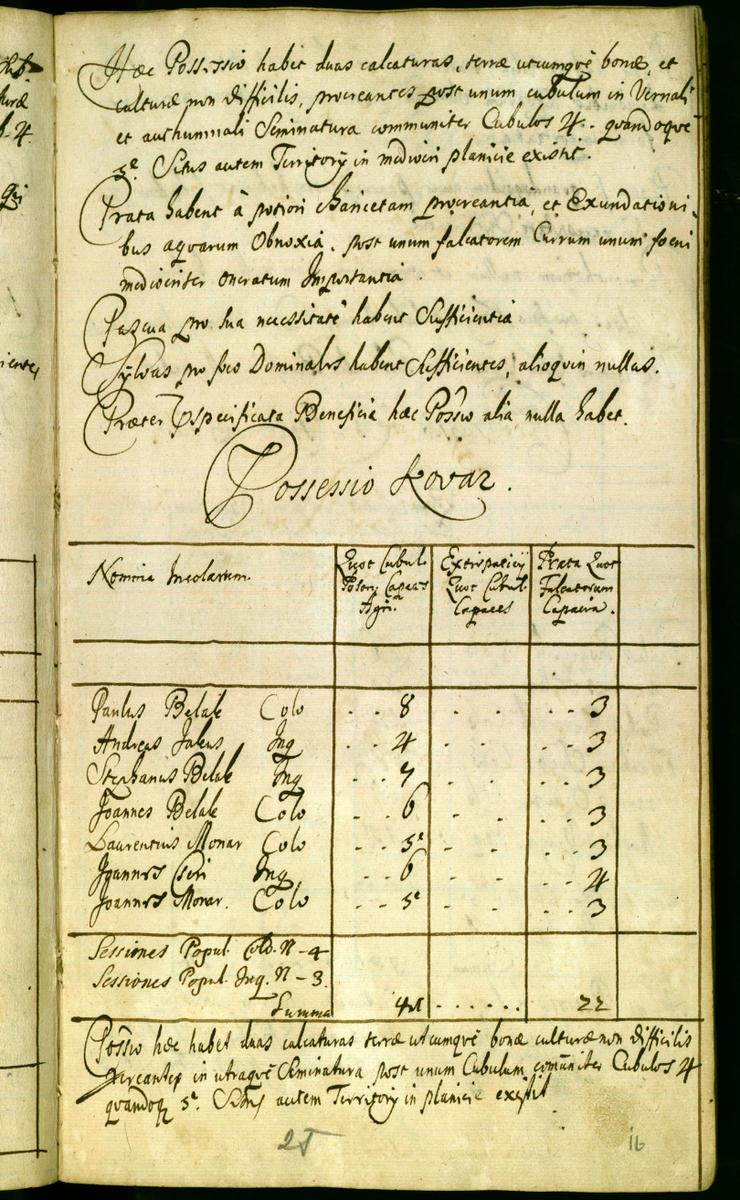 Hæc Possessio habet duas calcaturas, terræ utcumqvè bonæ, et
culturæ non difficilis, procreantes post unum cubulum in Vernali
et authumnali Seminatura communiter Cubulos 4. quandoqve
5e. Situs autem Territorÿ in mediocri planicie existit.
Prata habent à potiori Charicetam procreantia, et Exundationi-
bus aquarum Obnoxia, post unum falcatorem Currum unum foeni
mediocriter oneratum Importantia
Pascua pro sua necessitate habent Sufficientia
Sylvas pro foco Dominales habent Sufficientes, alioquin nullas.
Præter specificata Beneficia hæc Possio alia nulla habet.
Possessio Kovar.
Nomina Incolarum.
Quot Cubul. Poson. Capaces Agri.
Extirpaticÿ Quot Cubul. Capaces
Prata Quot Falcatorum Capacia.
Paulus Belak Colo - - 8 - - - - 3
Andreas Jakus Inq - - 4 - - - - 3
Stephanus Belak Inq - - 7 - - - - 3
Joannes Belak Colo - - 6 - - - - 3
Laurentius Monar Colo - - 5e - - - - 3
Joannes Cseri Inq - - 6 - - - - 4
Joannes Monar. Colo - - 5e - - - - 3
Sessiones Popul. Colo. N - 4
Sessiones Popul. Inq. N - 3.
Summa 41 . . . . . . 22
Possio hæc habet duas calcaturas terræ utcumqvè bonæ culturæ non difficilis
in utraqvè Seminatura post unum Cubulum comuniter Cubulos 4
quandoq 5e. Situs autem Territorÿ in planicie existit
25
16